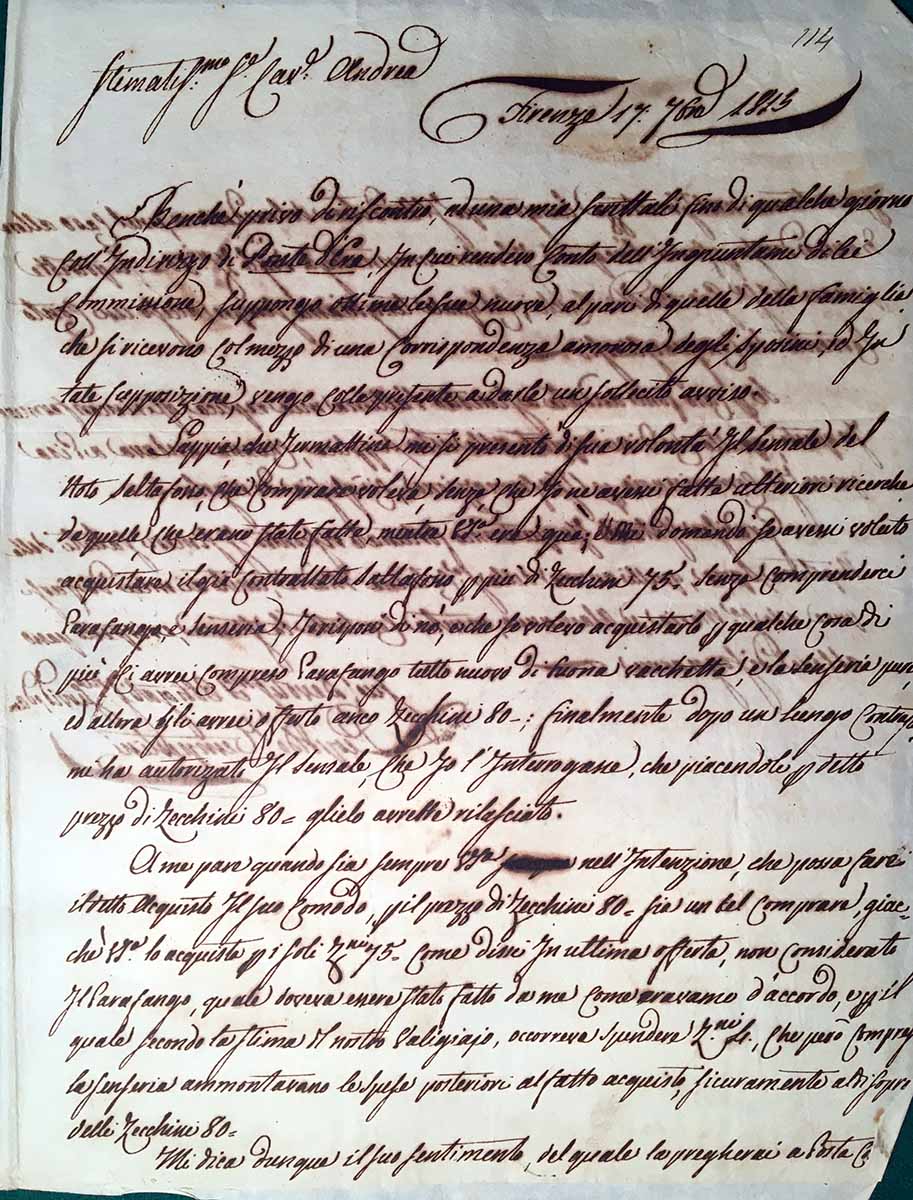 114
Stimatis.mo S.r Cav.r Andrea
Firenze 17. 7bre 1813
Benchè privo di riscontro, ad una mia scrittali fin di qualche giorno
Coll' Indirizzo di Ponte d'Era, In cui rendevo Conto dell' Ingiuntami di lei
Commissione, suppongo ottime le sue nuove, al pari di quelle della Famiglia
che si ricevono col mezzo di una Corrispondenza amorosa degli Sposini, ed In
tale supposizione, vengo colla presente a darle un sollecito avviso.
Sappia, che Iermattina mi si presentò di sua volontà Il Sensale del
Noto Saltafosso, che Comprare voleva, senza che Io ne avessi fatte ulteriori ricerche
da quelle, che erano state fatte, mentre V.S.a era quà; e mi domandò se avessi voluto
acquistare il già Contrattato Saltafosso p più di Zecchini 75= senza Comprenderci
Parafango, e Senseria; Io risposi di nò, e che se volevo acquistarlo p qualche cosa di
più ci avrei Compreso Parafango tutto nuovo di buona vacchetta, e la senseria pure
ed allora gli avrei offerto anco Zecchini 80=; finalmente dopo un lungo
mi ha autorizato Il Sensale, Che Io l'Interrogassi, che piacendole p detto
prezzo di Zecchini 80= glielo avrebbe rilasciato.
A me pare quando sia sempre V.S.a nell' Intenzione, che possa fare
il detto acquisto Il suo Comodo, p il prezzo di Zecchini 80= sia un bel Comprare, giac=
chè V.S.a lo acquista p i soli Z.ni 75= Come dissi In ultima offerta, non Considerato
Il Parafango, quale doveva essere stato fatto da me Come eravamo d'accordo, e p il
quale secondo la stima Il nostro Valigiajo, occorreva spendere Z.ni 4., Che però
la senseria ammontavano le spese posteriori al fatto acquisto, sicuramente al di sopra
delli Zecchini 80=
Mi dica dunque il suo sentimento, del quale la pregherei a Posta